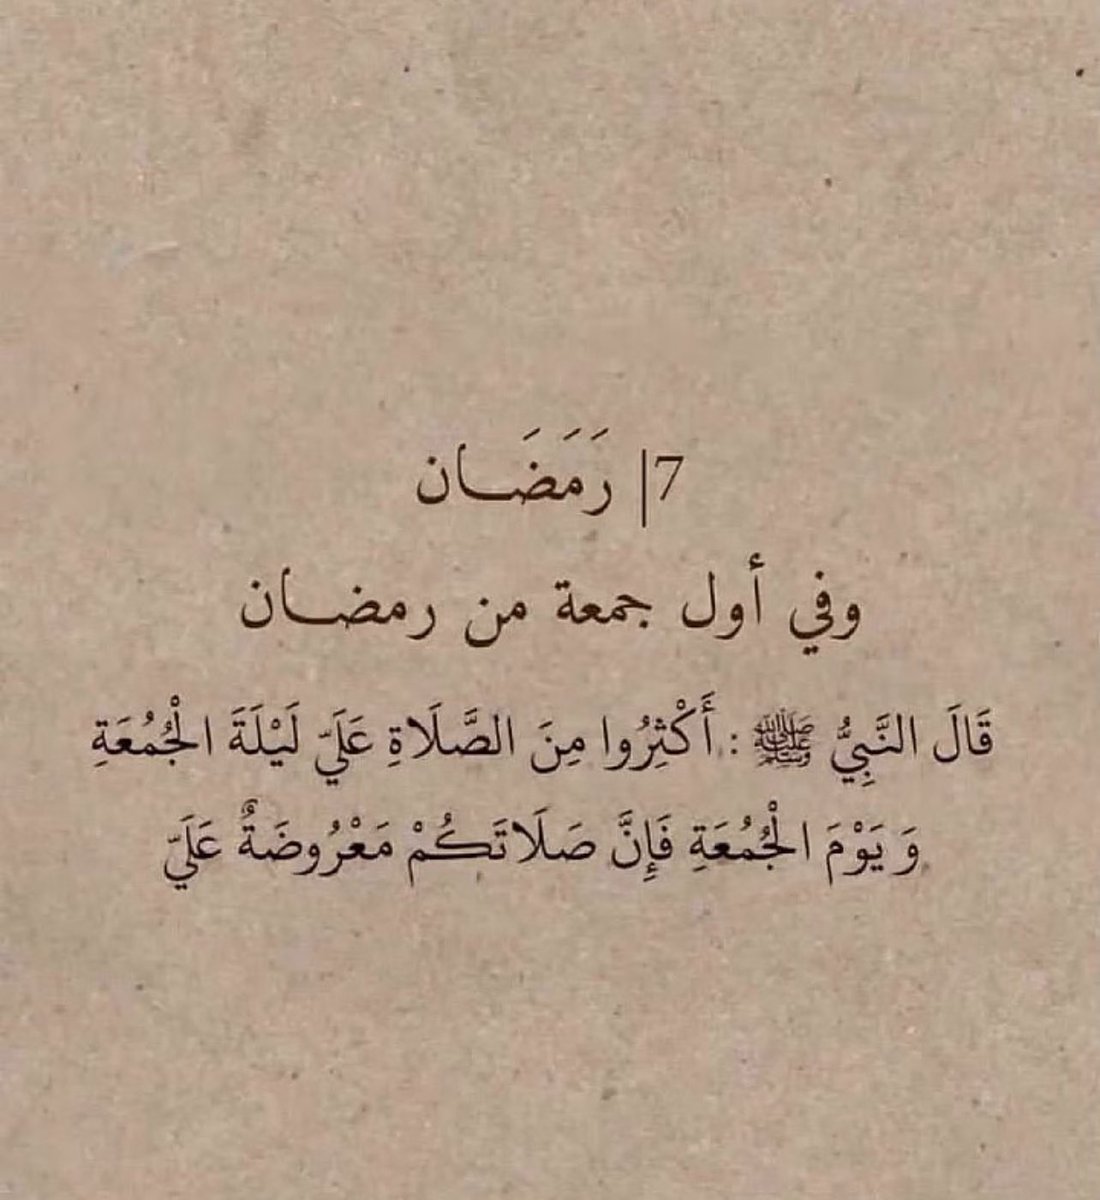 7| رَمَضَـان
وفي أول جمعة من رمضـان
قَالَ النَّبِيُّ ﷺ : أَكْثِرُوا مِنَ الصَّلَاةِ عَلَيّ لَيْلَةَ الْجُمُعَةِ
وَ يَوْمَ الْجُمُعَةِ فَإِنَّ صَلَاتَكُمْ مَعْرُوضَةٌ عَلَيّ